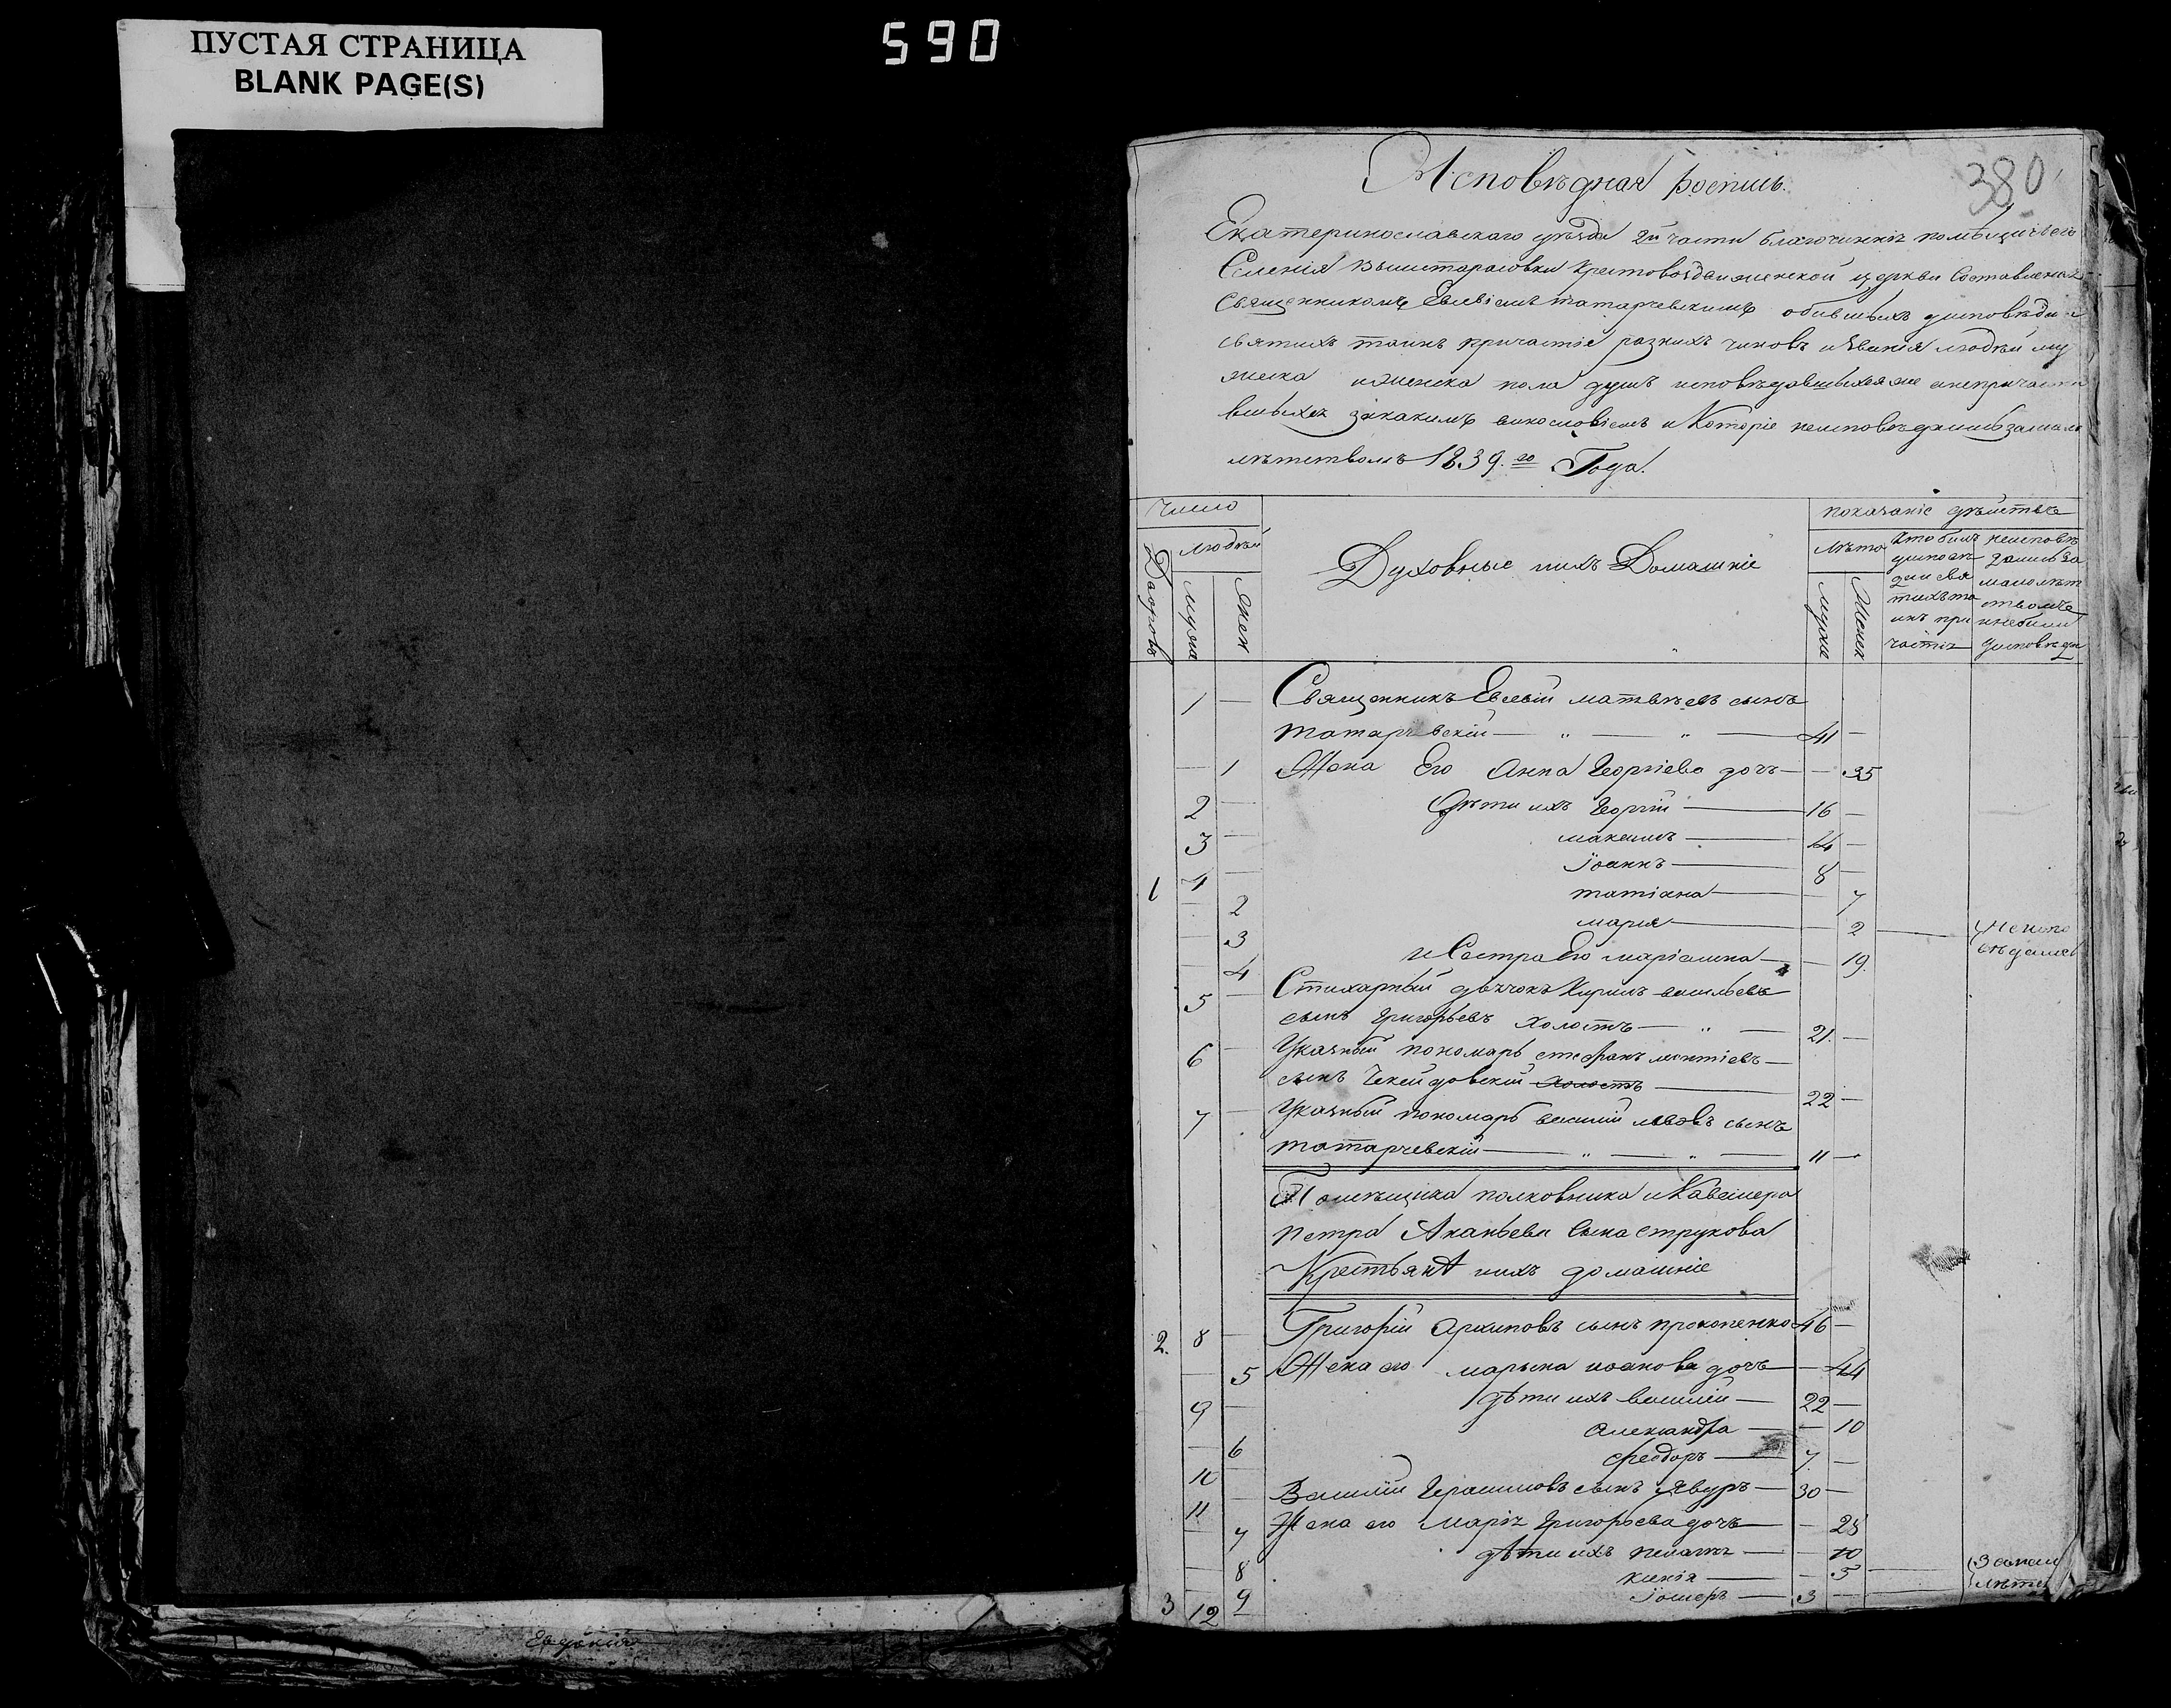 ПУСТАЯ СТРАНИЦА
BLANK PAGE(S)
590
380
Исповѣдная роспись.
Екатеринославского уѣзда 2й части благочиннія помѣщичьего
Селенія Вышетарасовки Крестовоздвиженской церкви Составленная
Священникомъ Евсевіемъ Татарчевскимъ обывшыхъ уисповѣди и
святихъ таинъ причастіе разнихъ чиновъ изванія людѣй му
жеска иженска пола душъ исповѣдавшыхся же инепричасти
вшыхся закакимъ винословіемъ и Которіе неисповѣдались замало
лѣтствомъ 1839.го Года.
Число
показаніе дѣйствъ
людѣй
Дворовъ
мужа
Жен
Духовные ихъ Домашніе
Лѣта
Мужа
Женск
кто былъ
уисповѣ
ди свя
тихъ та
инъ при
частія
неисповѣ
дались за
малолѣт
ствомъ
инебыли
уисповѣди
1 — Священникъ Евсевій матвѣевъ сынъ
татарчевскій — " — " — 41 —
1 Жена Его Анна Георгіева дочь — — 35
2 — Дѣти ихъ Георгій — 16 —
3 — максимъ — 14 —
4 — Іоаннъ — 8 —
1 — 2 татіана — — 7
— 3 марія — — 2 — Неиспо
вѣдалась
— 4 и Сестра Его маріамна — — 19.
5 — Стихарный дячокъ Кирилъ васильевъ
сынъ Григорьевъ холостъ — " — 21. —
6 — Указный пономарь стефанъ леонтіевъ —
сынъ Чекейдовскій холостъ — 22 —
7 — Указный пономарь василій львовъ сынъ
татарчевскій — " — " — 11 —
Помѣщика полковника и Кавалера
петра Ананьева Сына струкова
Крестьянѣ ихъ домашніе
2. 8 — Григорій Архиповъ сынъ прокопенко 46 —
— 5 Жена его марьяна иоанова дочъ — — 44
9 — дѣти ихъ василій — 22 —
— 6 Александра — — 10
10 — феодоръ — 7 —
11 — Василій Герасимовъ сынъ Явуръ — 30 —
— 7 Жена его Марія Григорьева дочъ — — 28
— 8 дѣти ихъ пелагія — — 10
— 9 ксенія — — 5 — Замал
лѣтс
3 12 — Іосифъ — 3 —
Евдокія